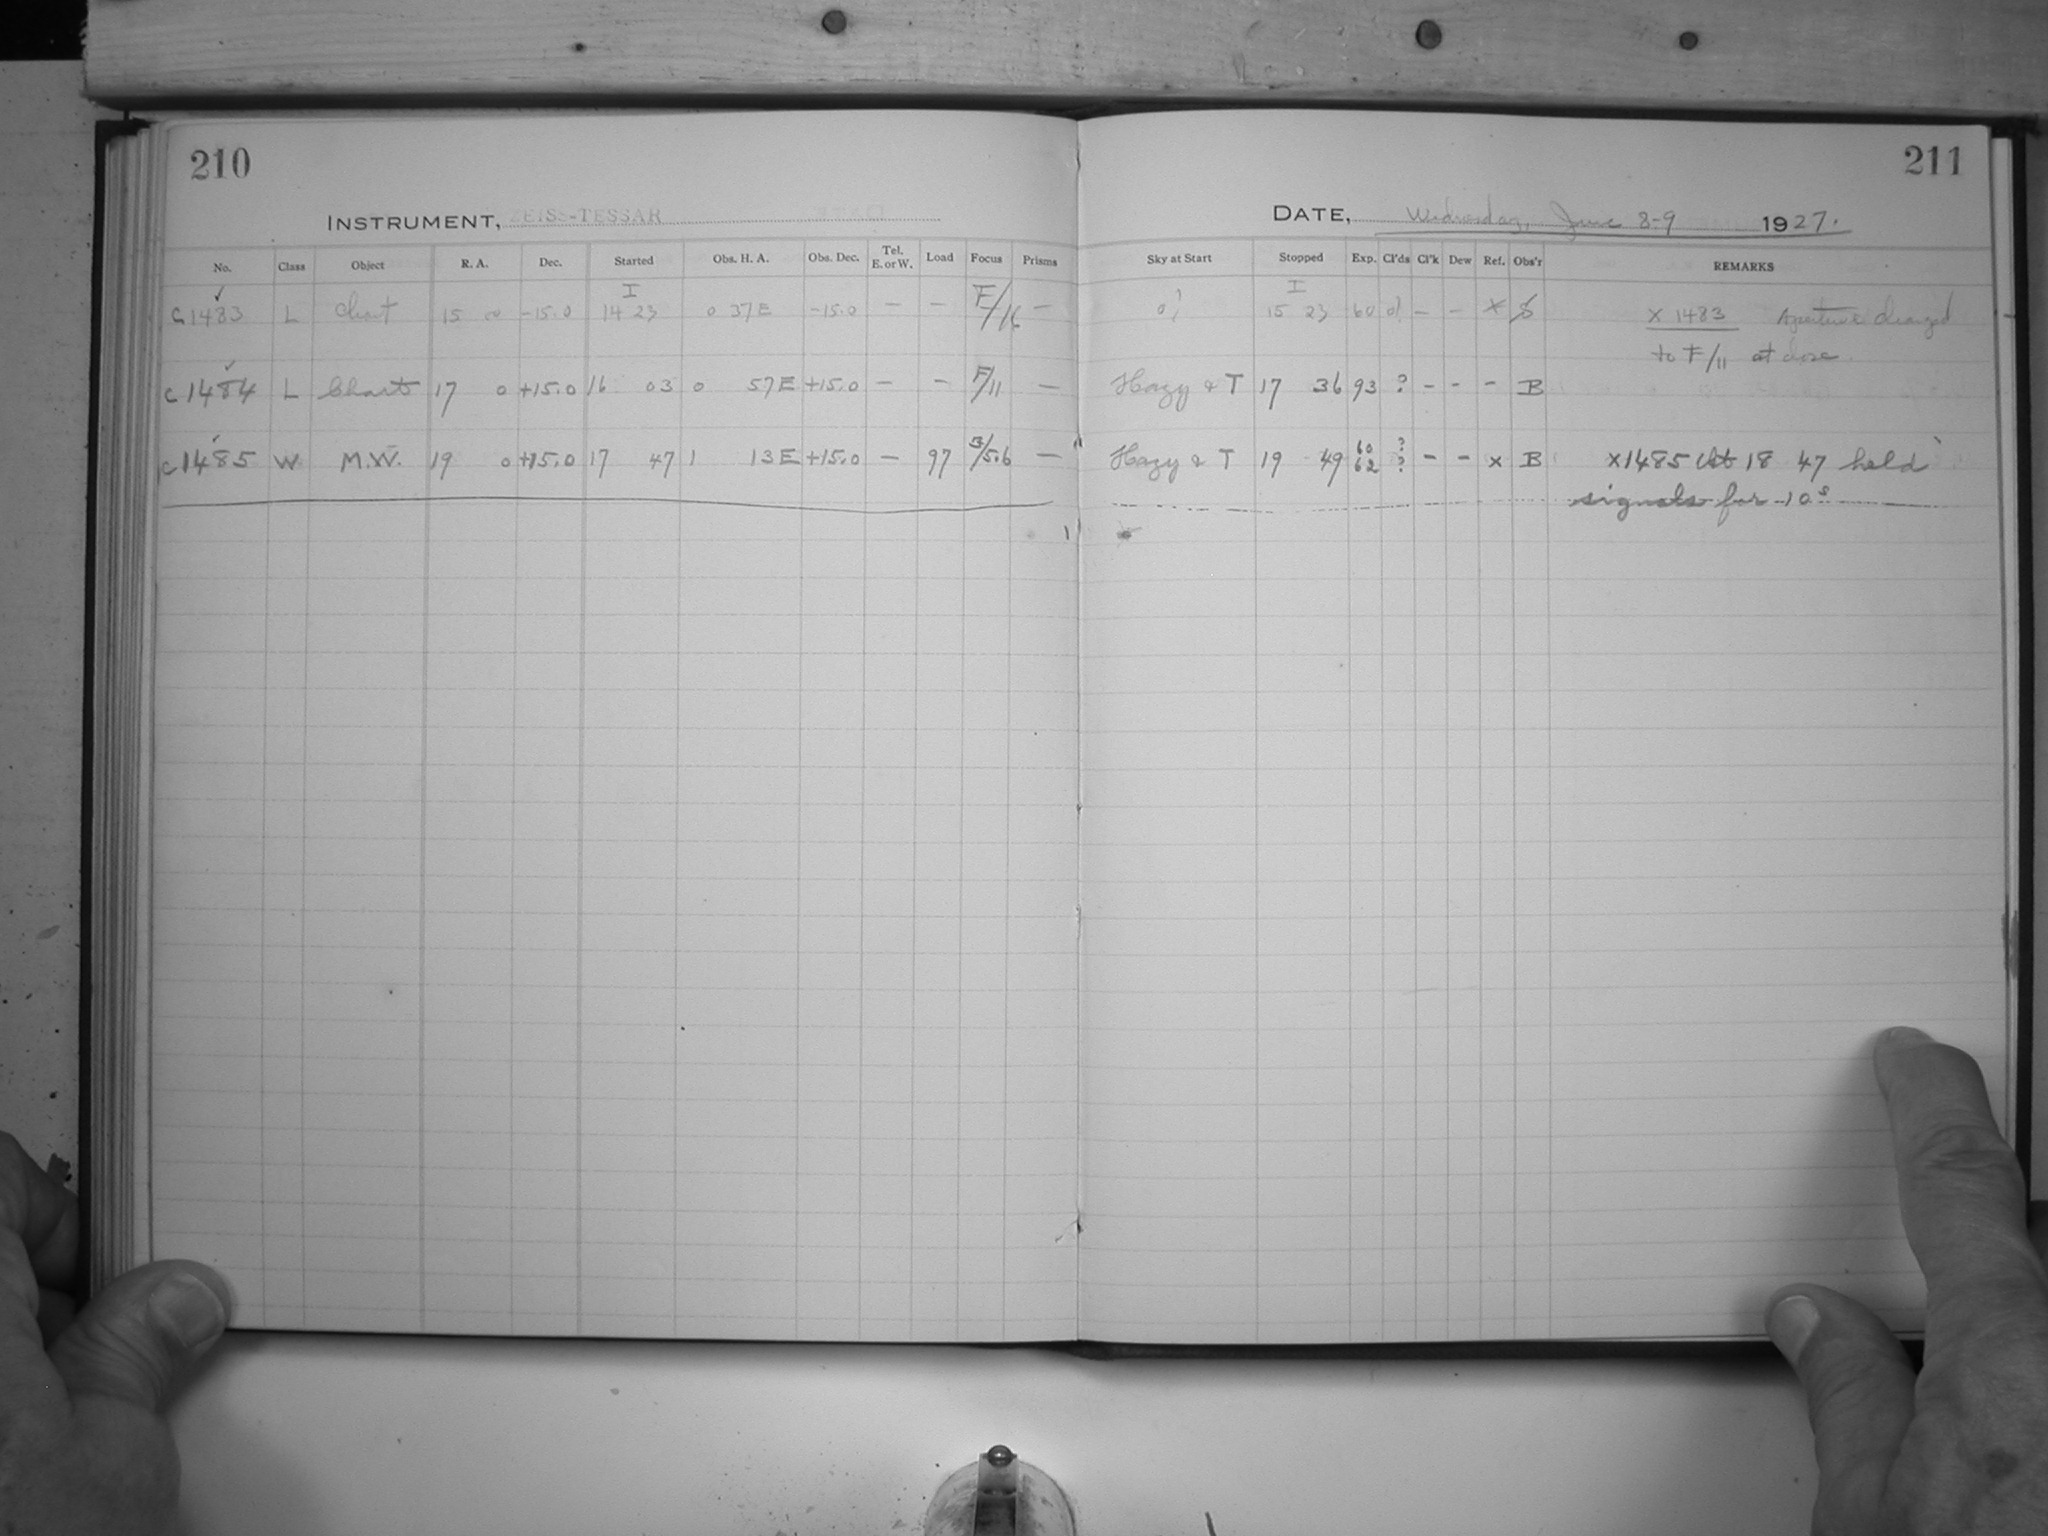 210
INSTRUMENT, ZEISS-TESSAR
No. Class Object R. A. Dec. Started Obs. H. A. Obs. Dec. Tel. E. or W. Load Focus Prisms
I
c1483 L Chart 15 00 -15.0 14 23 0 37E -15.0 — — F/16 —
c1484 L Charts 17 0 +15.0 16 03 0 57E +15.0 — — F/11 —
c1485 W M.W. 19 0 +15.0 17 47 1 13E +15.0 — 97 F/5.6 —
211
DATE, Wednesday, June 8-9 1927.
Sky at Start Stopped Exp. Cl'ds Cl'k Dew Ref. Obs'r REMARKS
I
0? 15 23 60 0? — — x S x 1483 Aperture changed
to F/11 at close.
Hazy & T 17 36 93 ? - - - B
Hazy & T 19 49 60 62 ? ? - - x B x1485 At 18 47 held
signals for 10s